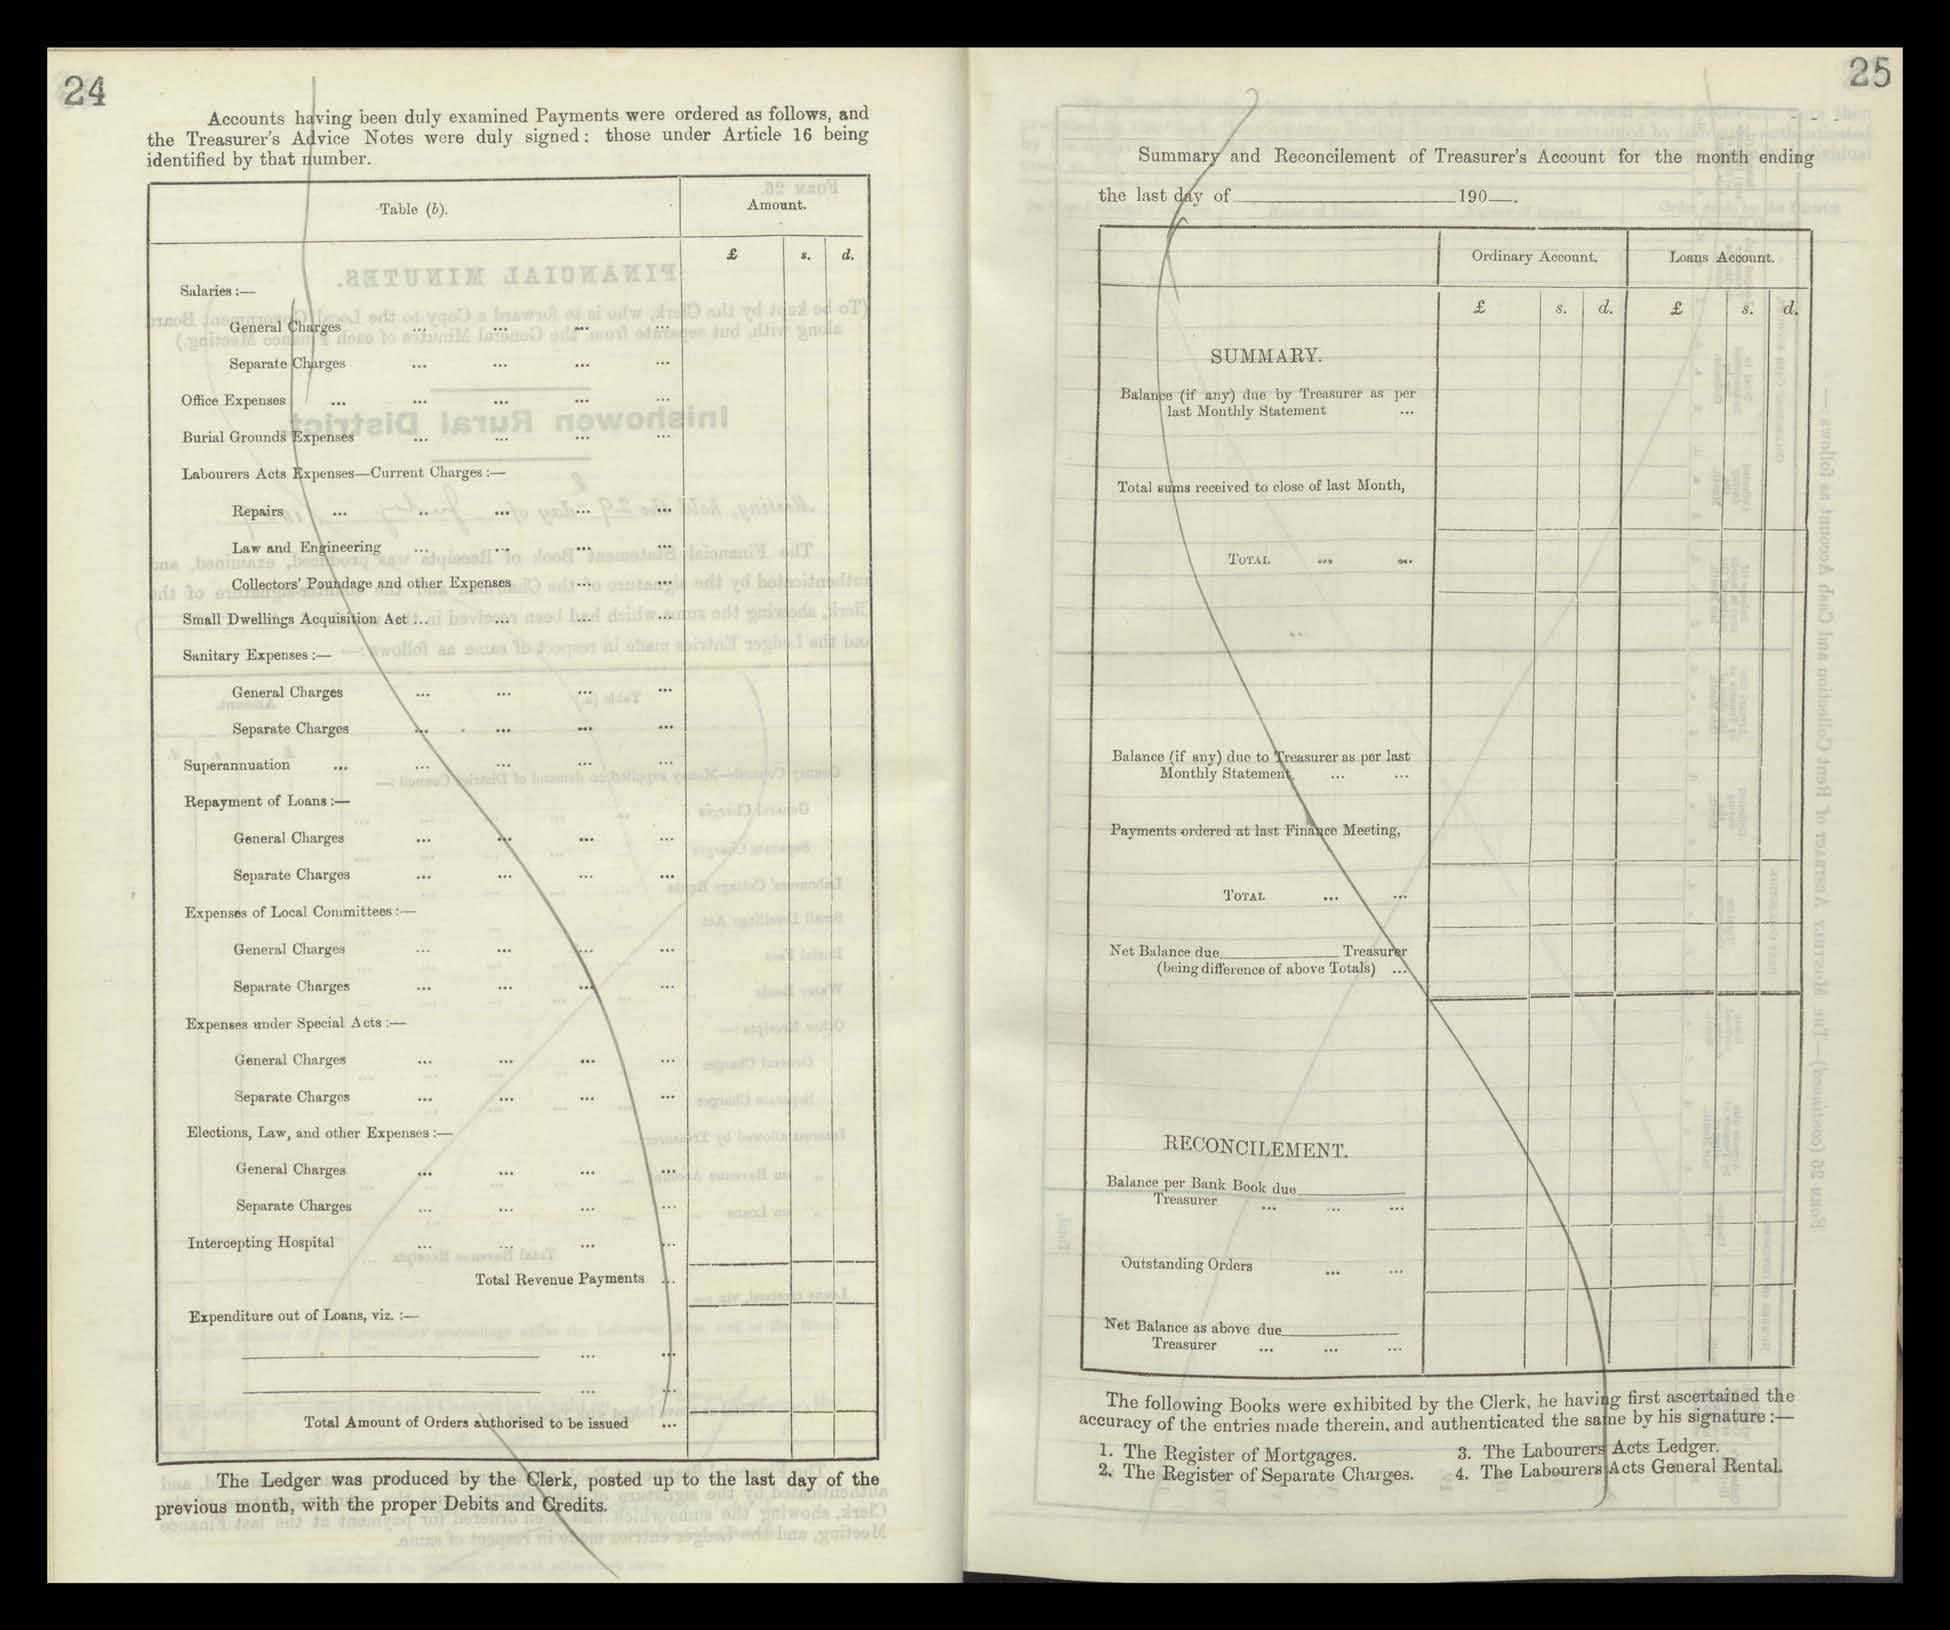 24
Accounts having been duly examined Payments were ordered as follows, and
the Treasurer's Advice Notes were duly signed: those under Article 16 being
identified by that number.
Table (b).
Amount.
£ s. d.
Salaries :—
General Charges ... ... ... ...
Separate Charges ... ... ... ...
Office Expenses ... ... ... ...
Burial Grounds Expenses ... ... ... ...
Labourers Acts Expenses—Current Charges :—
Repairs ... ... ... ... ...
Law and Engineering ... ... ... ...
Collectors' Poundage and other Expenses ... ...
Small Dwellings Acquisition Act ... ... ... ...
Sanitary Expenses :—
General Charges ... ... ... ...
Separate Charges ... ... ... ...
Superannuation ... ... ... ... ...
Repayment of Loans :—
General Charges ... ... ... ...
Separate Charges ... ... ... ...
Expenses of Local Committees :—
General Charges ... ... ... ...
Separate Charges ... ... ... ...
Expenses under Special Acts :—
General Charges ... ... ... ...
Separate Charges ... ... ... ...
Elections, Law, and other Expenses :—
General Charges ... ... ... ...
Separate Charges ... ... ... ...
Intercepting Hospital ... ... ... ...
Total Revenue Payments ...
Expenditure out of Loans, viz. :—
... ...
... ...
Total Amount of Orders authorised to be issued ...
The Ledger was produced by the Clerk, posted up to the last day of the
previous month, with the proper Debits and Credits.
25
Summary and Reconcilement of Treasurer's Account for the month ending
the last day of ____________ 190__.
Ordinary Account. Loans Account.
£ s. d. £ s. d.
SUMMARY.
Balance (if any) due by Treasurer as per
last Monthly Statement ...
Total sums received to close of last Month,
TOTAL ... ...
Balance (if any) due to Treasurer as per last
Monthly Statement, ... ...
Payments ordered at last Finance Meeting,
TOTAL ... ...
Net Balance due____________ Treasurer
(being difference of above Totals) ...
RECONCILEMENT.
Balance per Bank Book due____________
Treasurer ... ... ...
Outstanding Orders ... ...
Net Balance as above due____________
Treasurer ... ... ...
The following Books were exhibited by the Clerk, he having first ascertained the
accuracy of the entries made therein, and authenticated the same by his signature :—
1. The Register of Mortgages. 3. The Labourers Acts Ledger.
2. The Register of Separate Charges. 4. The Labourers Acts General Rental.